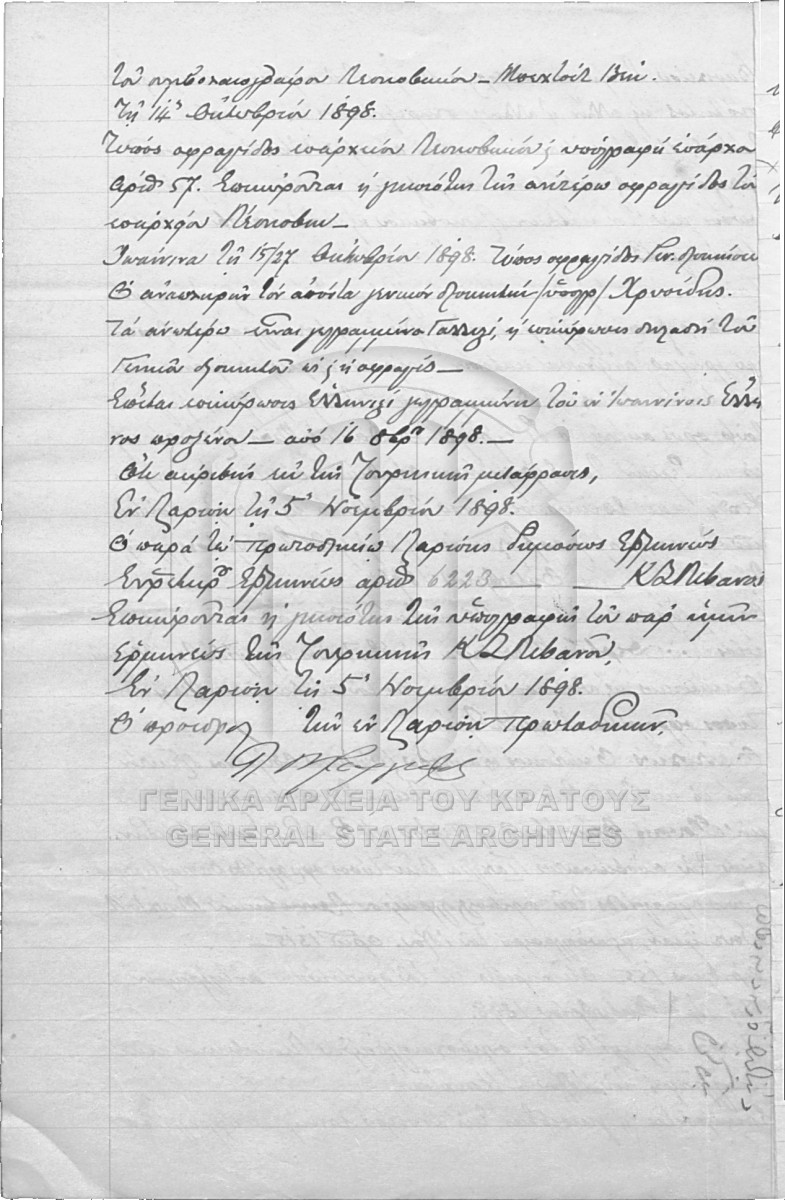 τοῦ συμβολαιογράφου Λεσκοβικίου – Μπεχτσὲτ Βέη.
Τῇ 14ῃ Ὀκτωβρίου 1898.
Τύπος σφραγίδος ἐπαρχείου Λεσκοβικίου ὑπογραφὴ ἐπάρχου
Ἀριθ 57. Ἐπικυροῦται ἡ γνησιότης τῆς ἀνωτέρω σφραγίδος τοῦ
ἐπαρχείου Λέσκοβικ –
Ἰωάννινα τῇ 15/27 Ὀκτωβρίου 1898. Τύπος σφραγῖδος Γεν. διοικήσεως
Ὁ ἀναπληρῶν τὸν ἀπόντα γενικὸν διοικητὴν /ὑπογρ/ Χρυσίδης.
τὰ ἀνωτέρω εἶναι γεγραμμένα Γαλλιστί, ἡ ἐπικύρωσις δηλαδὴ τοῦ
Γενικοῦ διοικητοῦ ὡς ἡ σφραγίς –
Ἕπεται ἐπικύρωσις Ἑλληνιστὶ γεγραμμένη τοῦ ἐν Ἰωαννίνοις Ἕλλη-
νος προξένου – ἀπὸ 16 8βρίου 1898. –
Ὅτι ἀκριβὴς ἐκ τῆς Τουρκικῆς μετάφρασις,
Ἐν Λαρίσῃ τῇ 5ῃ Νοεμβρίου 1898.
Ὁ παρὰ τῷ Πρωτοδικείῳ Λαρίσης δημόσιος Ἑρμηνεὺς
Ἑρμηνέως ἀριθ 6223 – – Κ Σ Λιβανός
Ἐπικυροῦται ἡ γνησιότης τῆς ὑπογραφῆς τοῦ παρ' ἡμῖν
Ἑρμηνέως τῆς Τουρκικῆς Κ Σ Λιβανοῦ,
Ἐν Λαρίσῃ τῇ 5ῃ Νοεμβρίου 1898.
Ὁ πρόεδρος τῶν ἐν Λαρίσῃ Πρωτοδικῶν,
ΓΕΝΙΚΑ ΑΡΧΕΙΑ ΤΟΥ ΚΡΑΤΟΥΣ
GENERAL STATE ARCHIVES